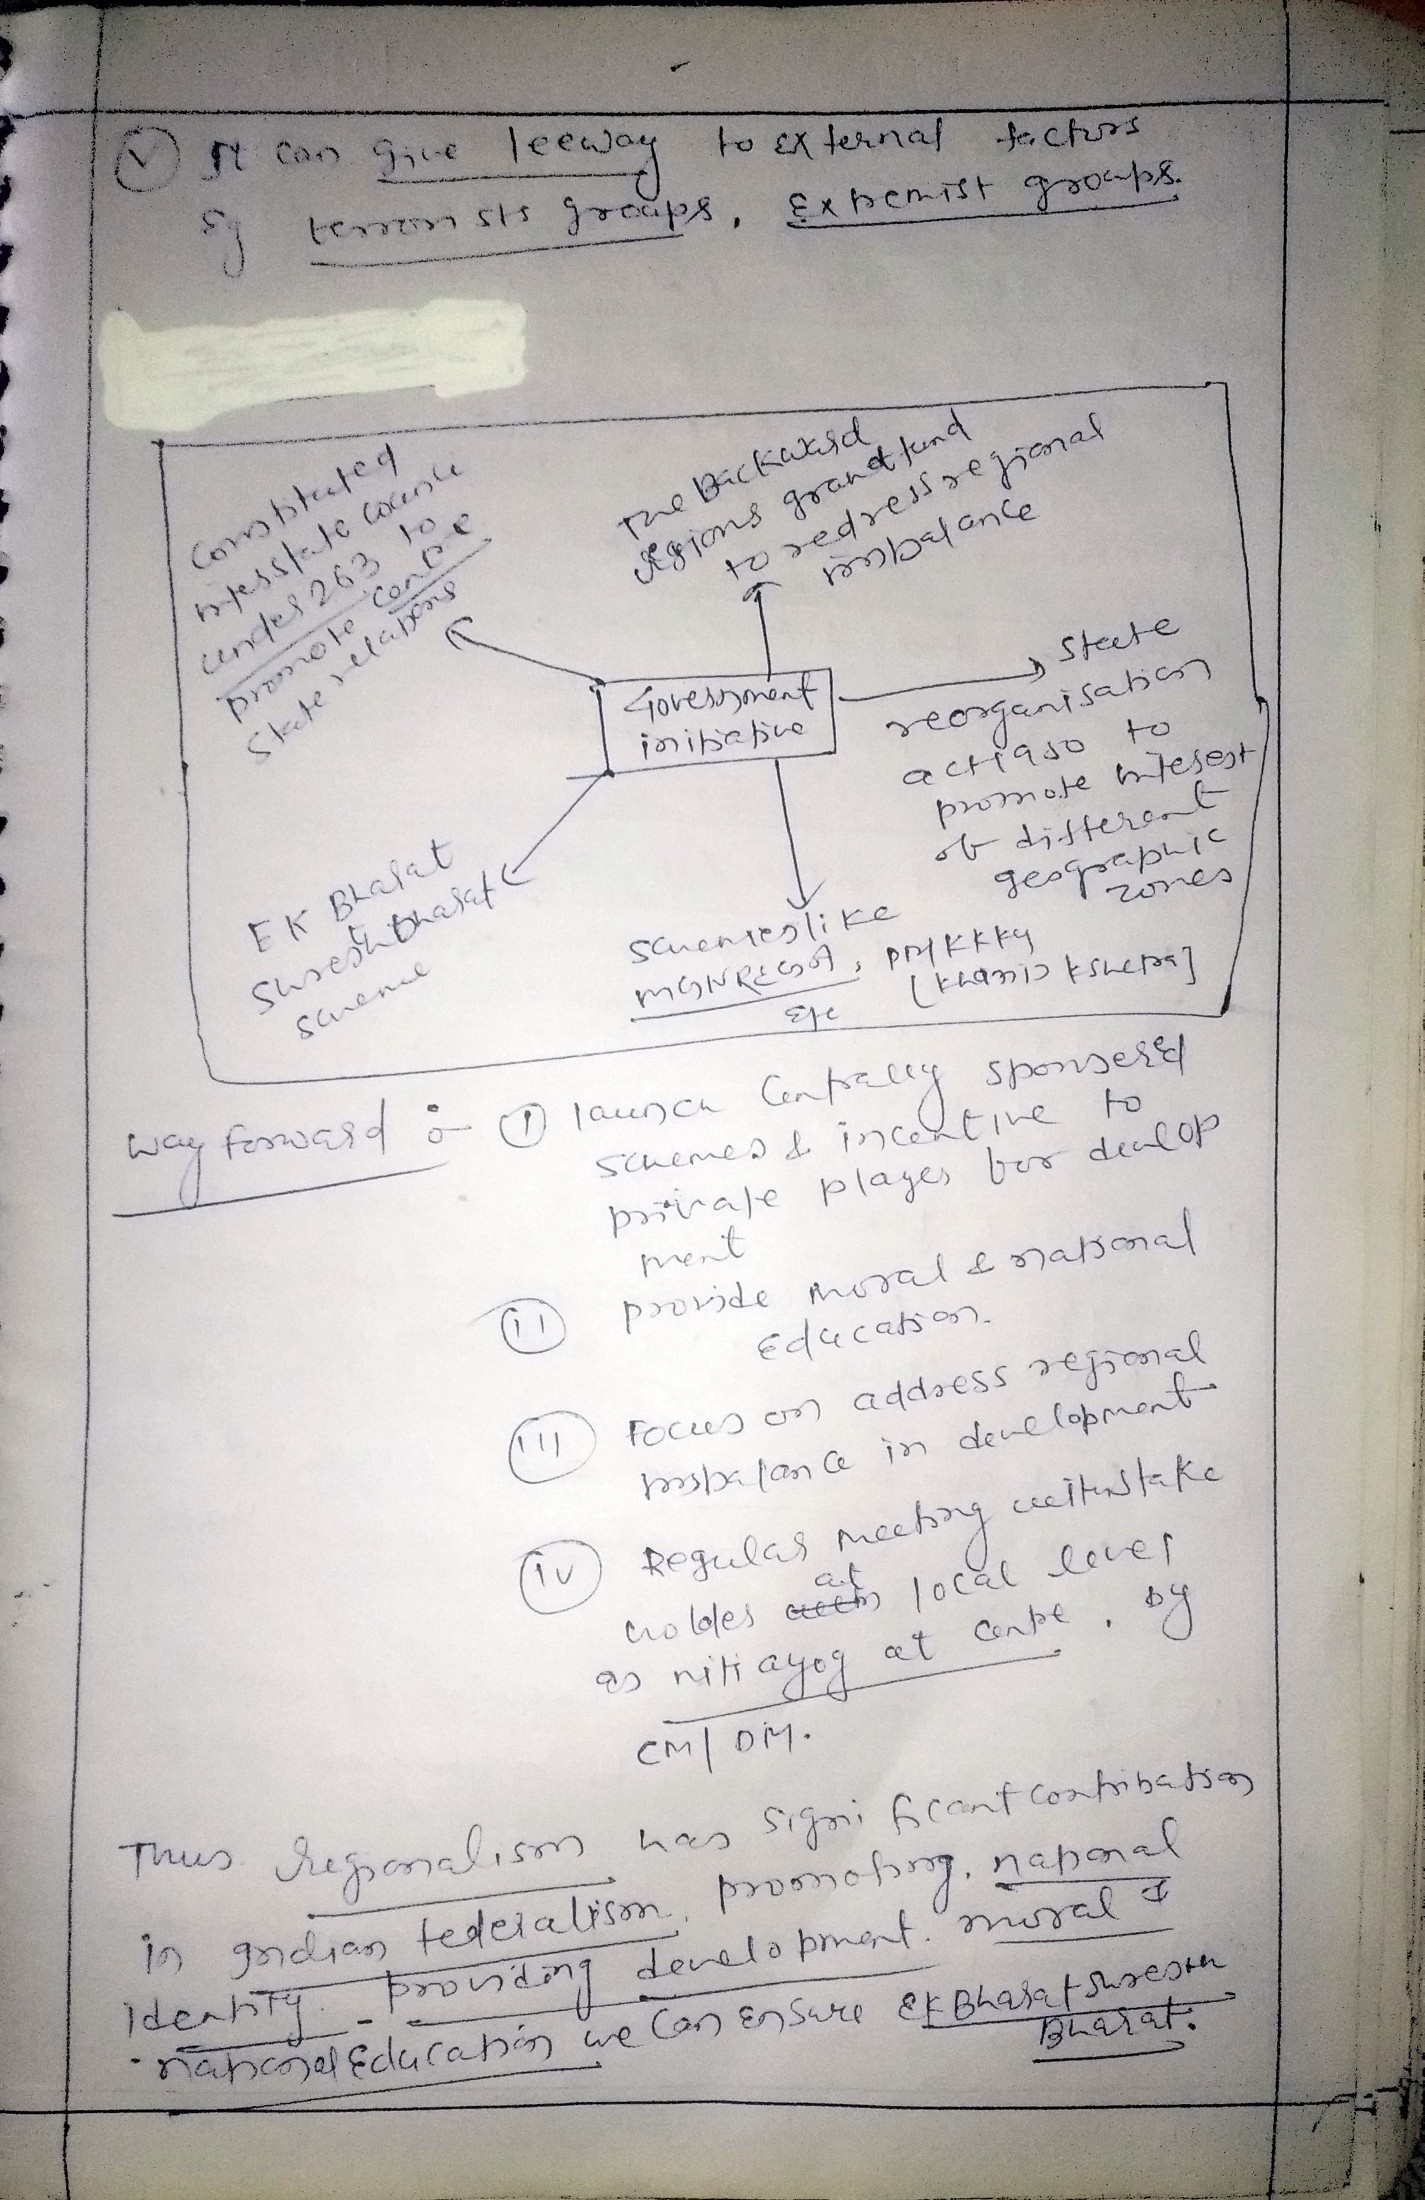 (v) It can give leeway to external factors
Eg terrorists groups, Extremist groups.
Constituted
interstate council
under 263 to
promote centre
state relations
The Backward
regions grant fund
to redress regional
imbalance
Government
initiative
State
reorganisation
act 1950 to
promote interest
of different
geographic
zones
EK Bharat
Shresth Bharat
scheme
schemes like
MGNREGA, PMKKKY
[khanij kshetra]
Etc
way forward :- (i) launch Centrally sponsered
schemes & incentive to
private player for develop
ment
(ii) provide moral & national
Education.
(iii) Focus on address regional
imbalance in development
(iv) Regular meeting with stake
holdes at local level
as niti ayog at centre, by
CM/DM.
Thus regionalism has significant contribution
in Indian federalism, promoting, national
identity. providing development. moral &
national Education we can ensure EK Bharat Shresth
Bharat.